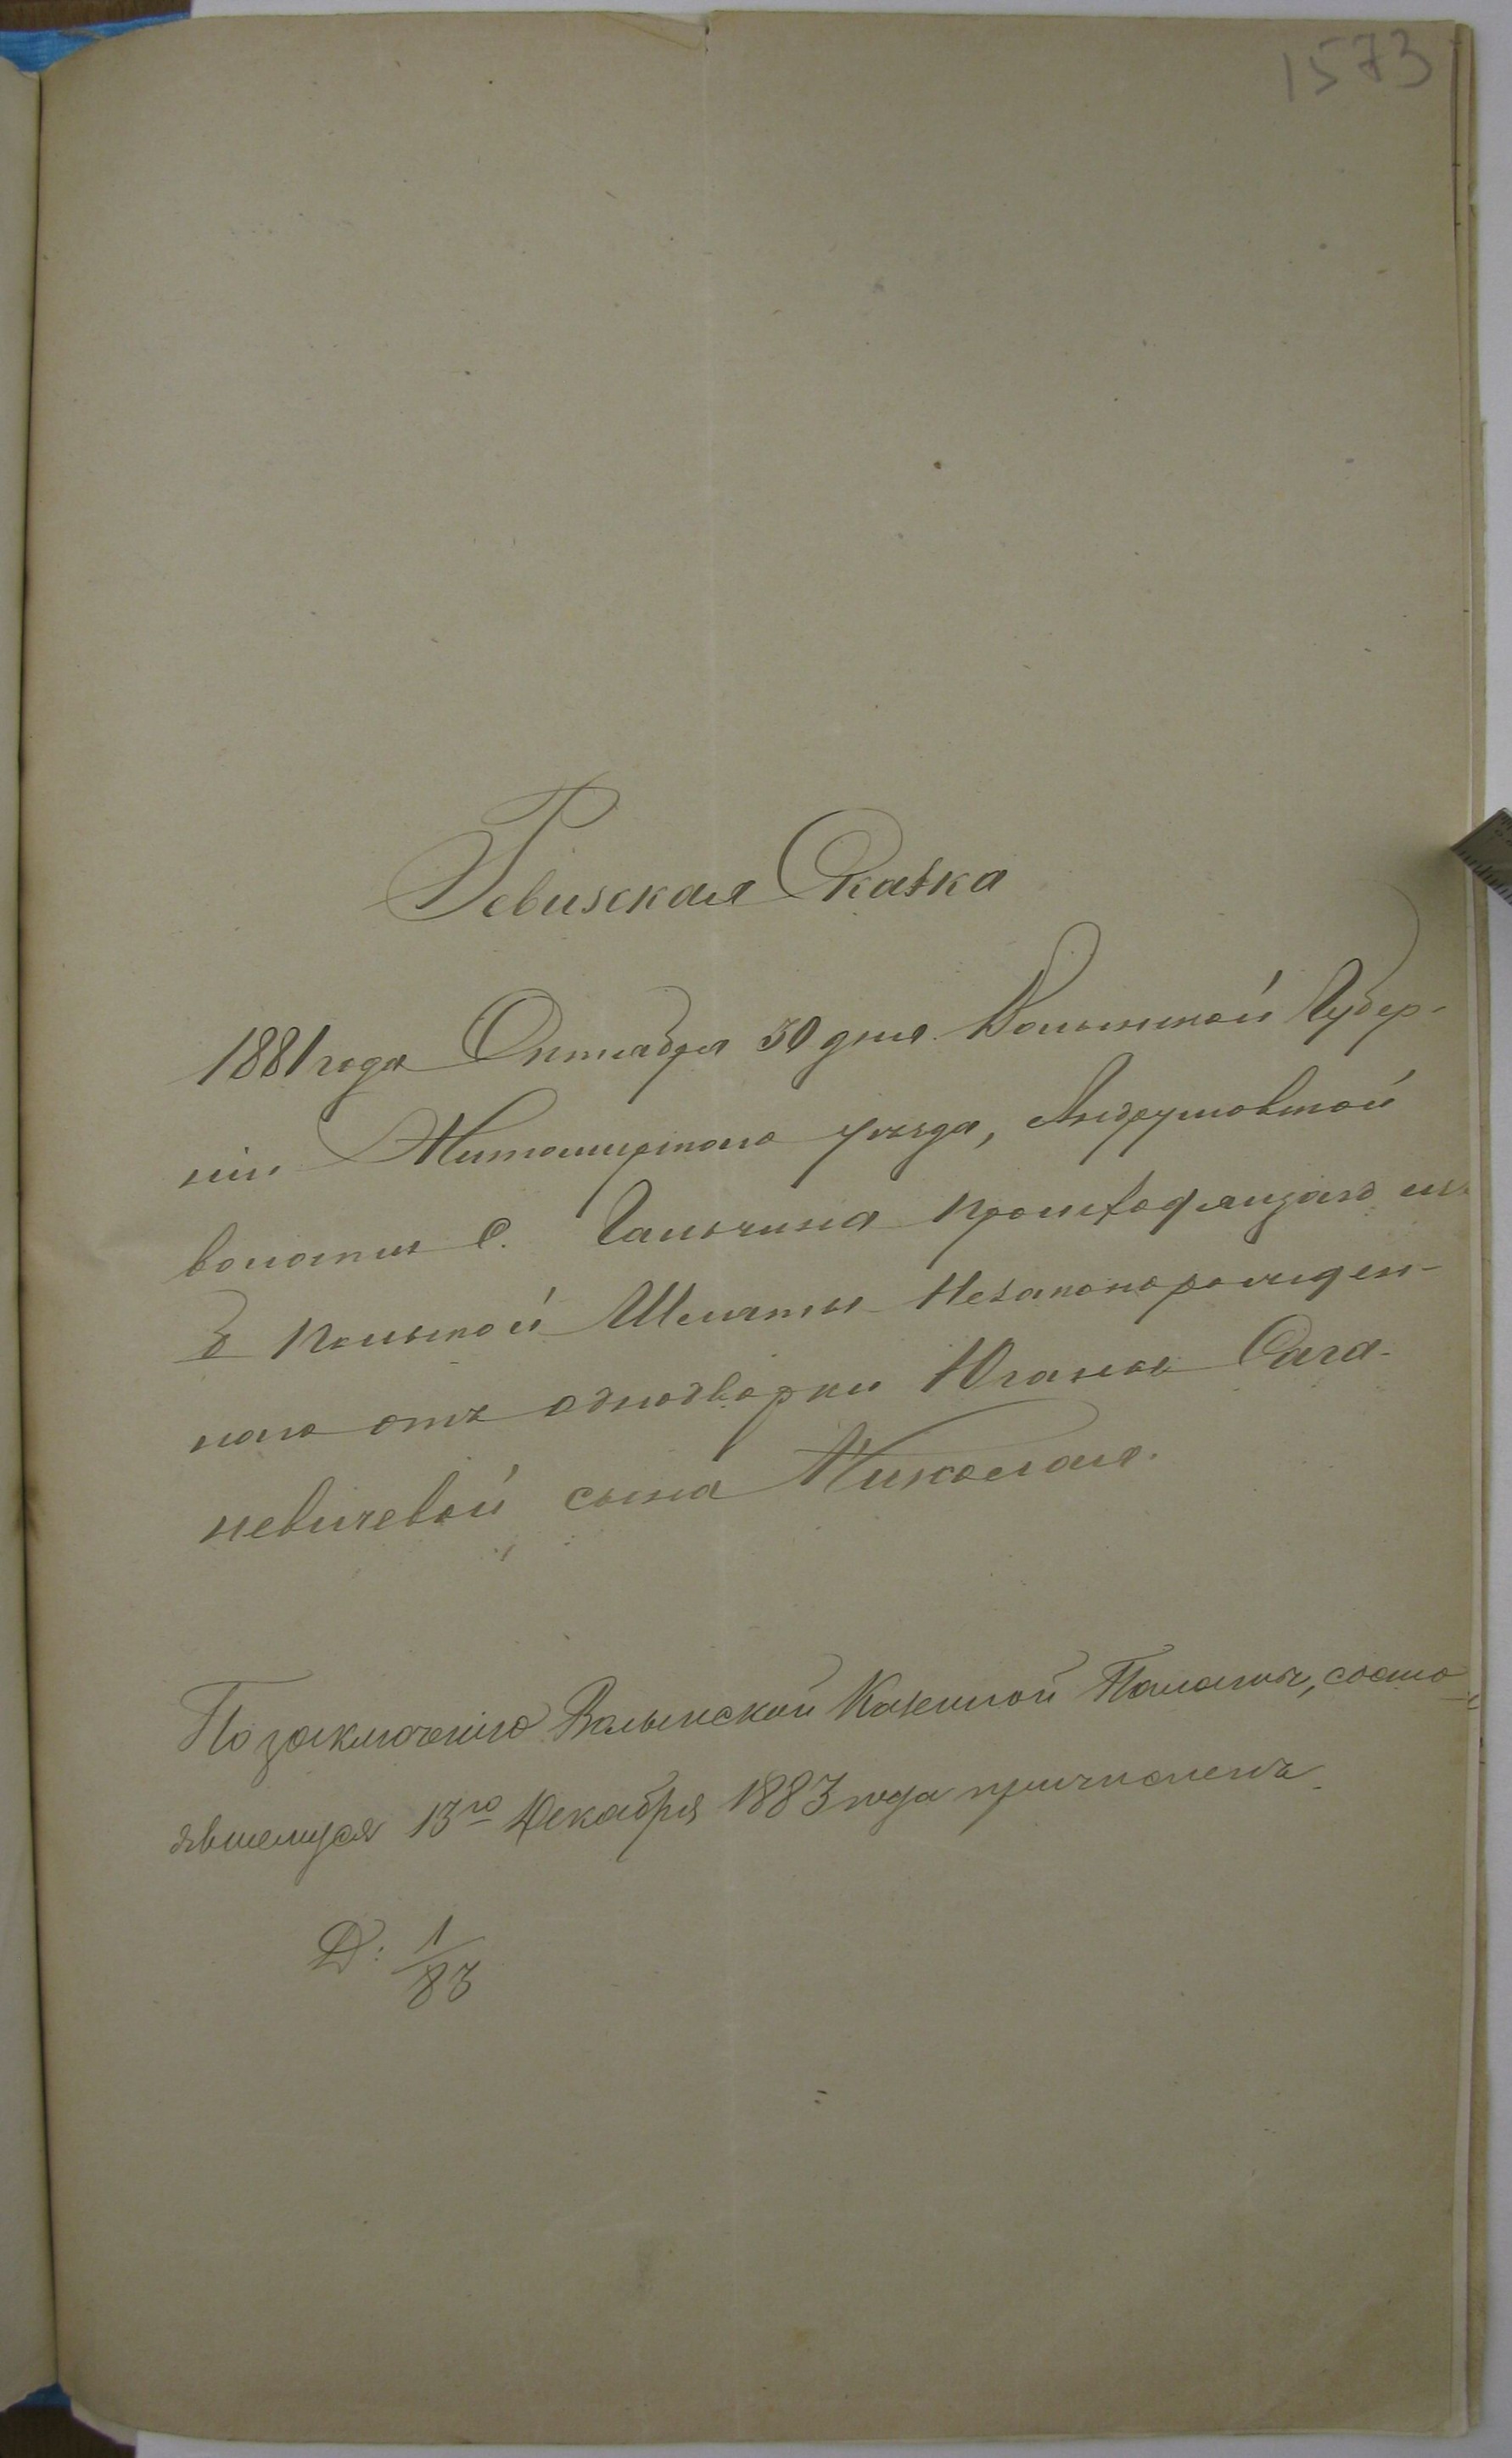 1573
Ревизская Сказка
1881 года Октября 30 дня. Волынской Губер-
ніи Житомирскаго уѣзда, Андрушовской
волости с. Гальчина
Польской Шляхты Незаконорожден-
наго отъ однодворки Юліаны Сага-
невичевой сына Николая.
По заключенію Волынской Казенной Палаты, состо-
явшемуся 13го Декабря 1883 года причисленъ.
Д: 1/83